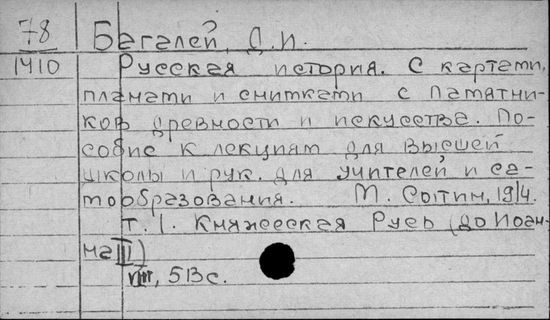 78 Багалей, Д.И.
1410 Русская история. С картами,
планами и снимками с памятни-
ков древности и искусства. По-
собие к лекциям для высшей
школы и рук. для учителей и са-
мообразования. М. Сытин, 1914.
т. 1. Княжеская Русь (до Иоан-
на III)
VIII, 513 с.